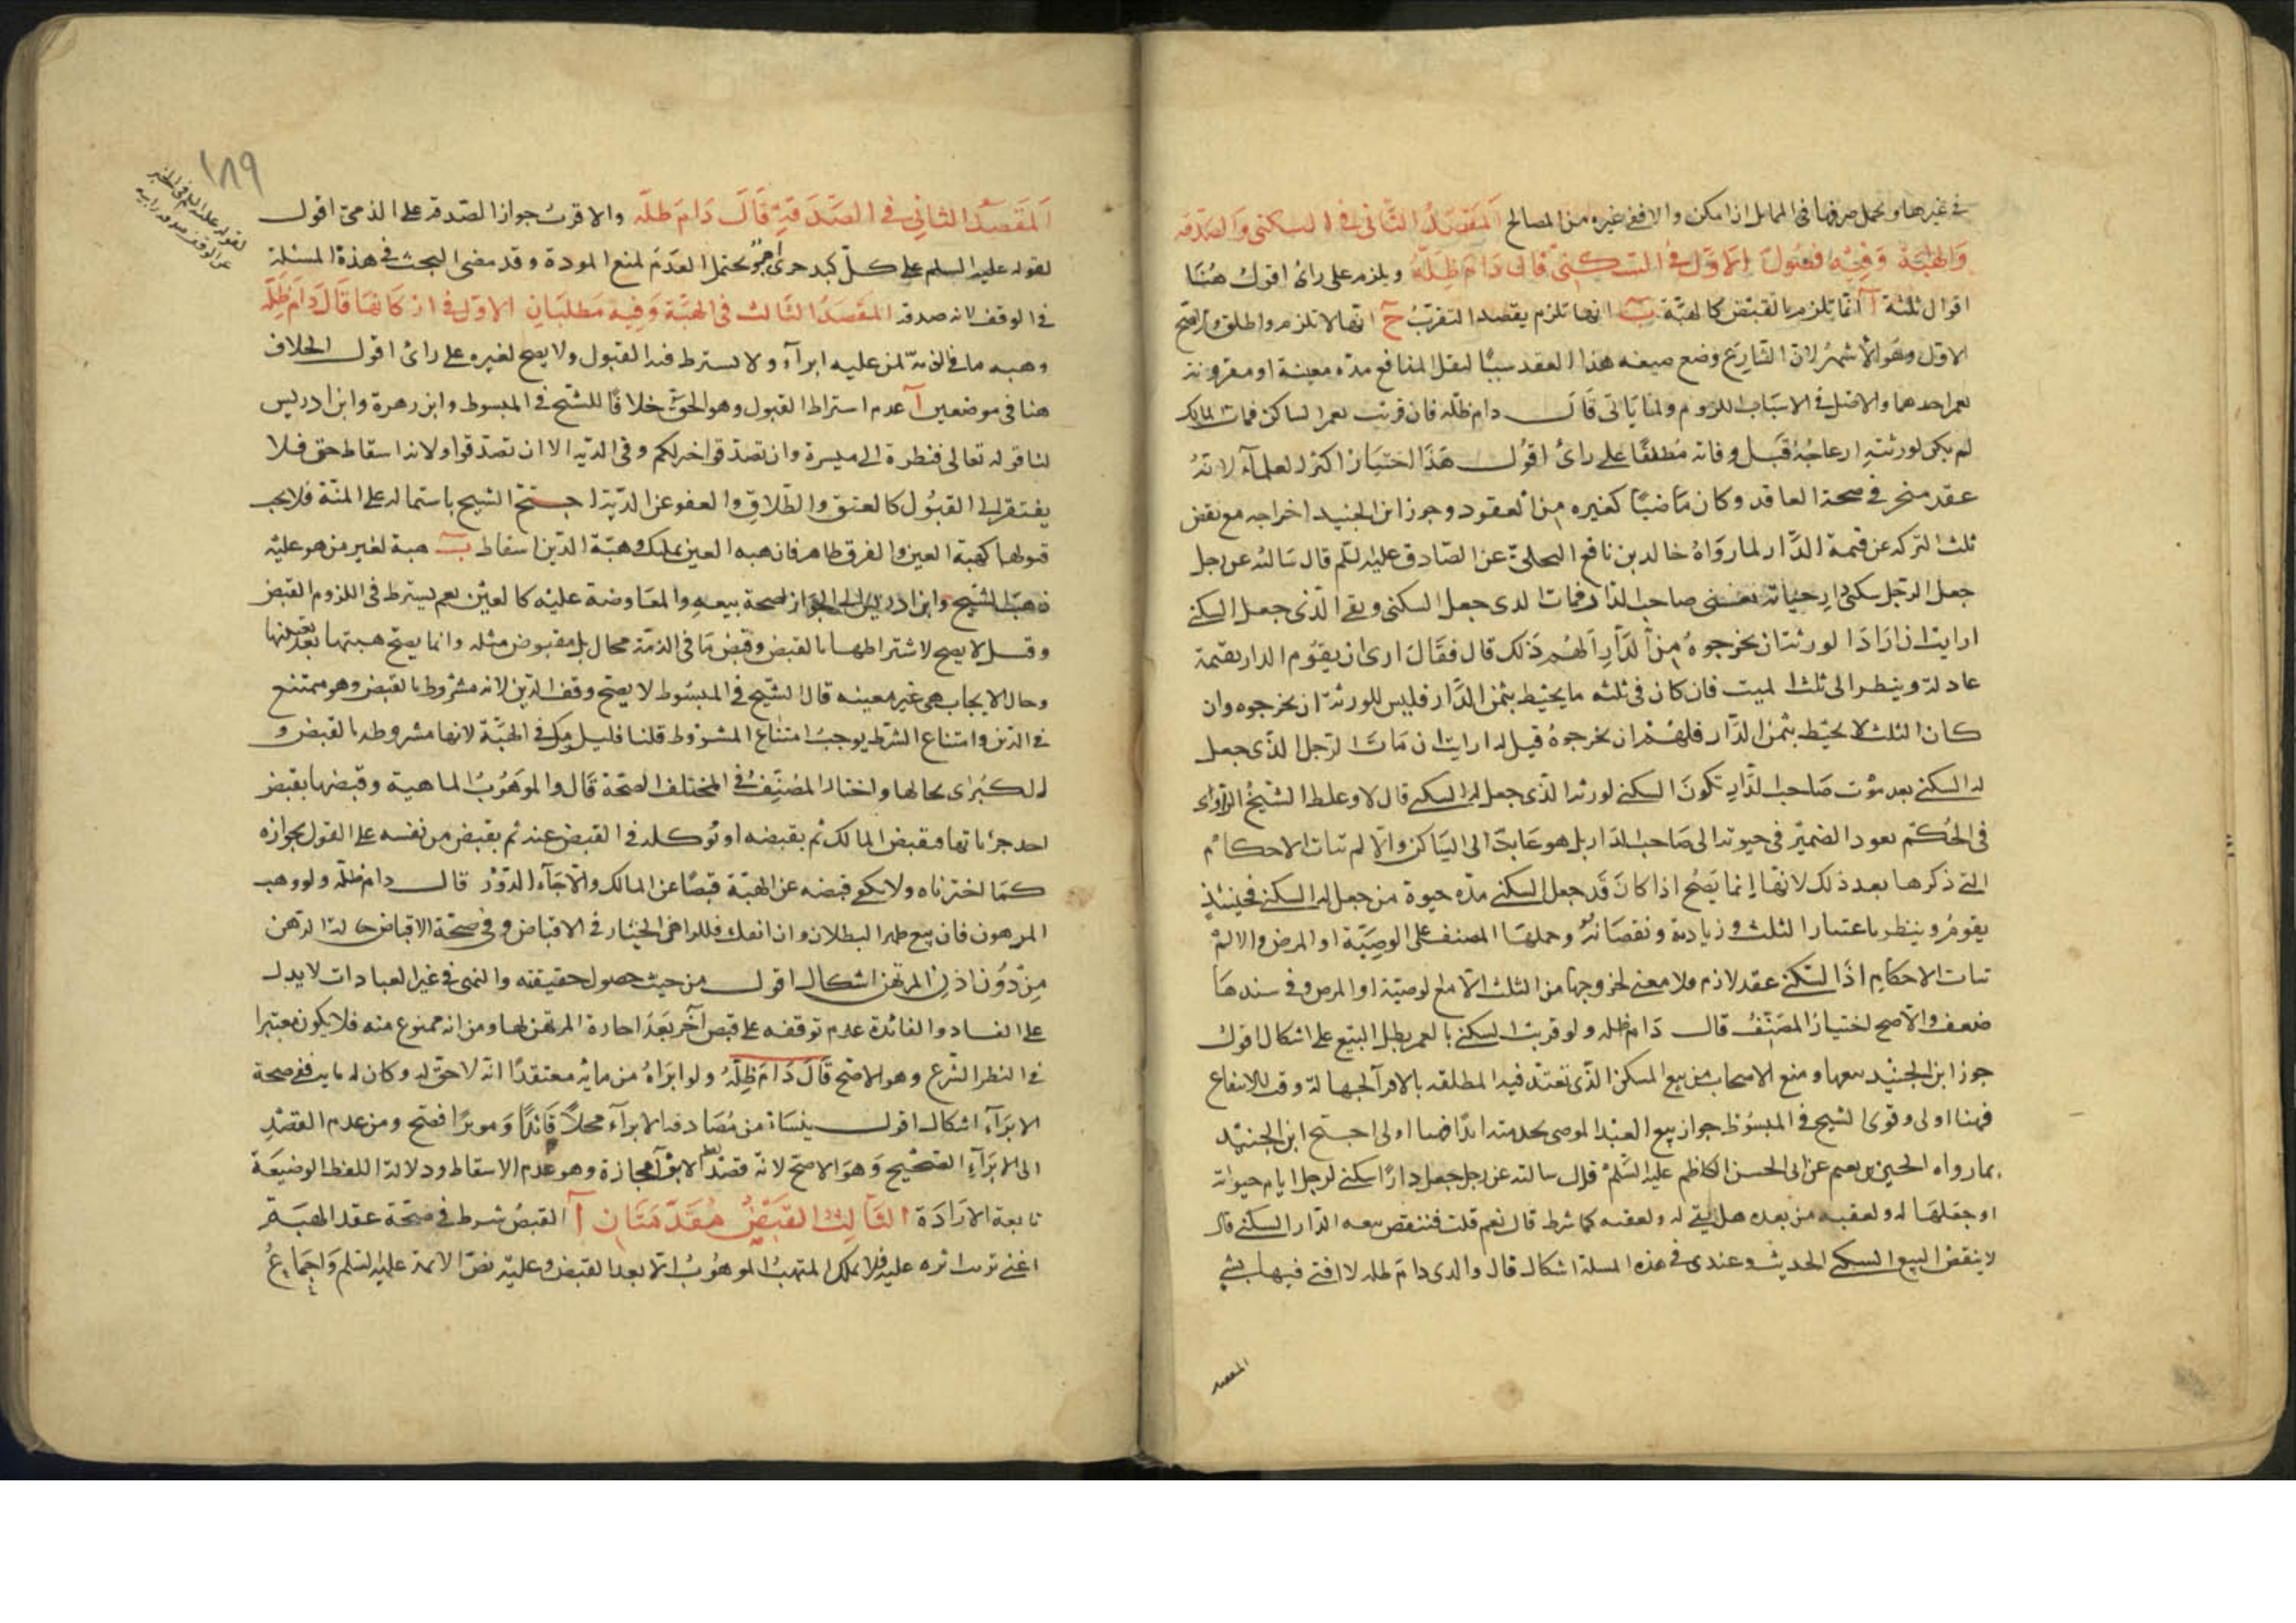 في غيرها ويحتمل صرفها في المماثل اذا امكن والا ففي غيره من المصالح المقصد الثاني في السكنى والصدقة
والهبة وفيه فصول الاول في السكنى قال دام ظله ويلزم على رأي اقول هنا
اقوال ثلثة آ انها تلزم بالقبض كالهبة ب انها تلزم بقصد التقرب ج انها لا تلزم مطلقا والاصح
الاول وهو الاشهر لان الشارع وضع صيغه هذا العقد سببا لنقل المنافع مدة معينة او مقرونة
بعمر احدهما والاصل في الاسباب اللزوم ولما ياتي قال دام ظله فان قرنت بعمر الساكن فمات المالك
لم يكن لورثته ازعاجه قبل وفاته مطلقا على رأي اقول هذا اختيار اكثر العلماء لانه
عقد منجز في صحة العاقد وكان ماضيا كغيره من العقود وجوز ابن الجنيد اخراجه مع نقص
ثلث التركه عن قيمة الدار لما رواه خالد بن نافع البجلي عن الصادق عليه السلم قال سالته عن رجل
جعل لرجل سكنى دار حياته يعني صاحب الدار فمات الذي جعل السكنى وبقي الذي جعل له السكنى
ارايت ان ارادا لورثة ان يخرجوه من الدار الهم ذلك قال فقال ارى ان يقوم الدار بقيمة
عادلة وينظر الى ثلث الميت فان كان في ثلثه ما يحيط بثمن الدار فليس للورثة ان يخرجوه وان
كان الثلث لا يحيط بثمن الدار فلهم ان يخرجوه قيل له ارايت ان مات الرجل الذي جعل
له السكنى بعد موت صاحب الدار تكون السكنى لورثة الذي جعل له السكنى قال لا وغلط الشيخ الراوي
في الحكم بعود الضمير في حيوته الى صاحب الدار بل هو عايد الى الساكن والا لم تتات الاحكام
التي ذكرها بعد ذلك لانها انما يصح اذا كان قد جعل السكنى مدة حيوة من جعل له السكنى فحينئذ
يقوم وينظر باعتبار الثلث وزيادته ونقصانه وحملها المصنف على الوصية او المرض والا لم
تتات الاحكام اذا السكنى عقد لازم فلا معنى لخروجها من الثلث الا مع الوصية او المرض وفي سندها
ضعف والاصح اختيار المصنف قال دام ظله ولو قرنت السكنى بالعمر بطل البيع على اشكال اقول
جوز ابن الجنيد بيعها ومنع الاصحاب من بيع المسكن الذي تعتد فيه المطلقه بالاقراء لجهالة وقت الانتفاع
فهنا اولى وقوى الشيخ في المبسوط جواز بيع العبد الموصى بخدمته ابدا فهنا اولى احتج ابن الجنيد
بما رواه الحسين بن نعيم عن ابي الحسن الكاظم عليه السلم قال سالته عن رجل جعل دارا سكنى لرجل ايام حيوته
او جعلها له ولعقبه من بعده هل يبقى له ولعقبه كما شرط قال نعم قلت فتنقض بيعه الدار السكنى قال
لا ينقض البيع السكنى الحديث وعندي في هذه المسلة اشكال قال والدي دام ظله لا افتي فيها بشيء
المقصد
١٨٩
لقوله عليه السلم في الخبر
عن الوقف صدقة
المقصد الثاني في الصدقة قال دام ظله والاقرب جواز الصدقة على الذمي اقول
لقوله عليه السلم على كل كبد حرى اجر يحتمل العدم لمنع المودة وقد مضى البحث في هذة المسئلة
في الوقف لانه صدقه المقصد الثالث في الهبة وفيه مطلبان الاول في اركانها قال دام ظله
وهبه ما في الذمة لمن عليه ابراء ولا يشترط فيه القبول ولا يصح لغيره على رأي اقول الخلاف
هنا في موضعين آ عدم اشتراط القبول وهو الحق خلافا للشيخ في المبسوط وابن زهرة وابن ادريس
لنا قوله تعالى فنظرة الى ميسرة وان تصدقوا خير لكم وفي الدية الا ان تصدقوا ولانه اسقاط حق فلا
يفتقر الى القبول كالعتق والطلاق والعفو عن الدية احتج الشيخ باشتماله على المنة فلا يجب
قبولها كهبة العين والفرق ظاهر فان هبه العين تمليك وهبة الدين اسقاط ب هبة لغير من هو عليه
ذهب الشيخ وابن ادريس الى الجواز لصحة بيعه والمعاوضة عليه كالعين نعم يشترط في اللزوم القبض
وقيل لا يصح لاشتراطها بالقبض وقبض ما في الذمة محال بل مقبوض مثله وانما يصح هبتها بعد تعينها
وحال الايجاب هي غير معينه قال الشيخ في المبسوط لا يصح وقف الدين لانه مشروط بالقبض وهو ممتنع
في الدين وامتناع الشرط يوجب امتناع المشروط قلنا فليكن في الهبة لانها مشروطه بالقبض و
الكبرى بحالها واختار المصنف في المختلف الصحة قال والموهوب الماهية وقبضها بقبض
احد جزئياتها فيقبض المالك ثم يقبضه او يوكله في القبض عنه ثم يقبض من نفسه على القول بجوازه
كما اخترناه ولا يكفي قبضه عن الهبة قبضا عن المالك والا جاء الدور قال دام ظله ولو وهب
المرهون فان بيع ظهر البطلان وان انفك فللراهن الخيار في الاقباض وفي صحة الاقباض حالة الرهن
من دون اذن المرتهن اشكال اقول من حيث حصول حقيقته والنهي في غير العبادات لا يدل
على الفساد والفائدة عدم توقفه على قبض آخر بعد اجازة المرتهن لها ومن انه ممنوع منه فلا يكون معتبرا
في النظر الشرع وهو الاصح قال دام ظله ولو ابراه من مائة معتقدا انه لا حق له وكان له مائة ففي صحة
الابراء اشكال اقول ينشا من مصادفة الابراء محلا قابلا وموبرا فصح ومن عدم القصد
الى الابراء الصحيح وهو الاصح لانه قصد لفظ الابراء مجازة وهو عدم الاسقاط ودلالة اللفظ الوضيعة
تابعة الارادة الثالث القبض مقدمتان آ القبض شرط في صحة عقد الهبة
اعني ترتب اثره عليه فلا يملك المتهب الموهوب الا بعد القبض وعليه نص الائمة عليه السلم واجماع